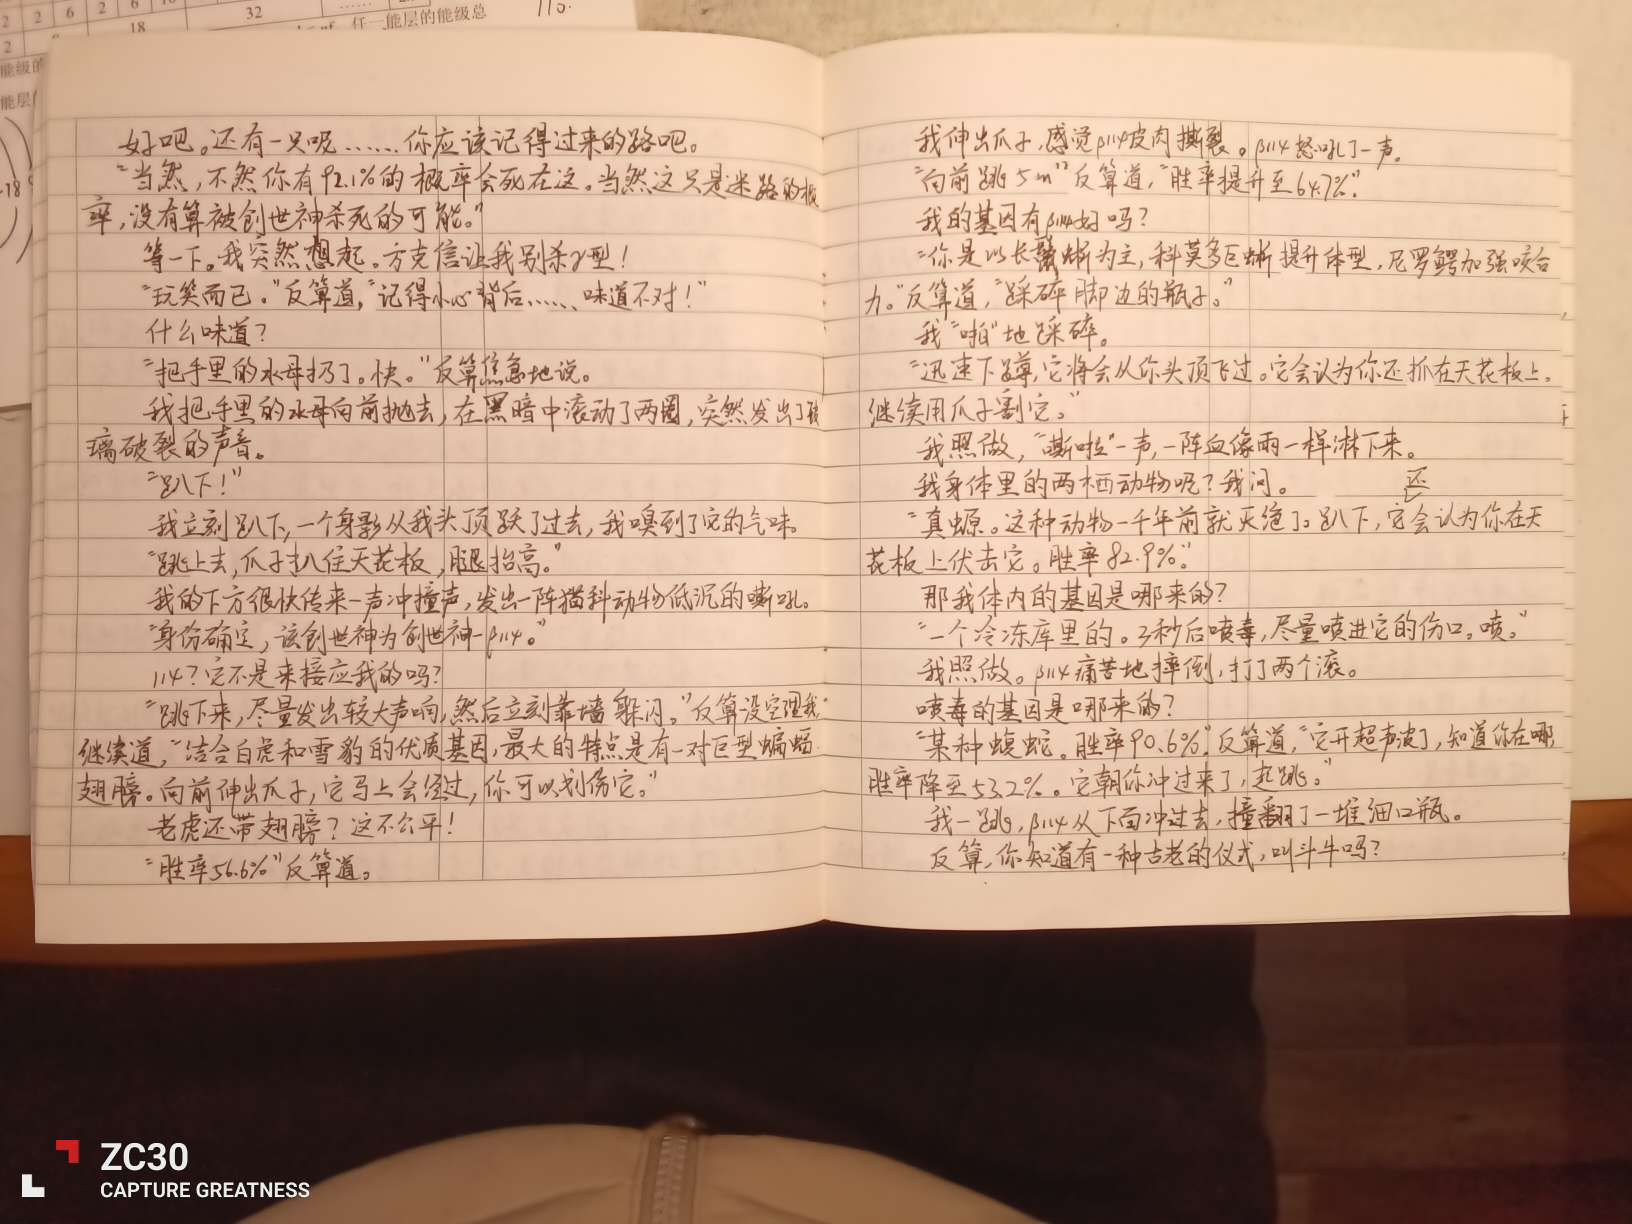 好吧。还有一只呢……你应该记得过来的路吧。
“当然,不然你有92.1%的概率会死在这。当然这只是迷路的概
率,没有算被创世神杀死的可能。”
等一下。我突然想起。方克信让我别杀γ型!
“玩笑而已。”反算道,“记得小心背后……味道不对!”
什么味道?
“把手里的水母扔了。快。”反算焦急地说。
我把手里的水母向前抛去,在黑暗中滚动了两圈,突然发出了玻
璃破裂的声音。
“趴下!”
我立刻趴下,一个身影从我头顶跃了过去,我嗅到了它的气味。
“跳上去,爪子扒住天花板,腿抬高。”
我的下方很快传来一声冲撞声,发出一阵猫科动物低沉的嘶吼。
“身份确定,该创世神为创世神-β114。”
114?它不是来接应我的吗?
“跳下来,尽量发出较大声响,然后立刻靠墙躲闪。”反算没空理我
继续道,“结合白虎和雪豹的优质基因,最大的特点是有一对巨型蝙蝠
翅膀。向前伸出爪子,它马上会经过,你可以划伤它。”
老虎还带翅膀?这不公平!
“胜率56.6%”反算道。
我伸出爪子,感觉β114皮肉撕裂。β114怒吼了一声。
“向前跳5m”反算道,“胜率提升至64.7%”
我的基因有β114好吗?
“你是以长鬣蜥为主,科莫多巨蜥提升体型,尼罗鳄加强咬合
力。”反算道,“踩碎脚边的瓶子。”
我“啪”地踩碎。
“迅速下蹲,它将会从你头顶飞过。它会认为你还抓在天花板上。
继续用爪子割它。”
我照做,“嘶啦”一声,一阵血像雨一样淋下来。
我身体里的两栖动物呢?我问。
还
“真螈。这种动物一千年前就灭绝了。趴下,它会认为你在天
花板上伏击它。胜率82.9%.”
那我体内的基因是哪来的?
“一个冷冻库里的。3秒后喷毒,尽量喷进它的伤口。喷。”
我照做。β114痛苦地摔倒,打了两个滚。
喷毒的基因是哪来的?
“某种蝮蛇。胜率90.6%.”反算道,“它开超声波了,知道你在哪
胜率降至53.2%。它朝你冲过来了,起跳。”
我一跳,β114从下面冲过去,撞翻了一堆细口瓶。
反算,你知道有一种古老的仪式,叫斗牛吗?
ZC30
CAPTURE GREATNESS
2 2 6 2 6
18
32
任一能层的能级总
能级的
能层